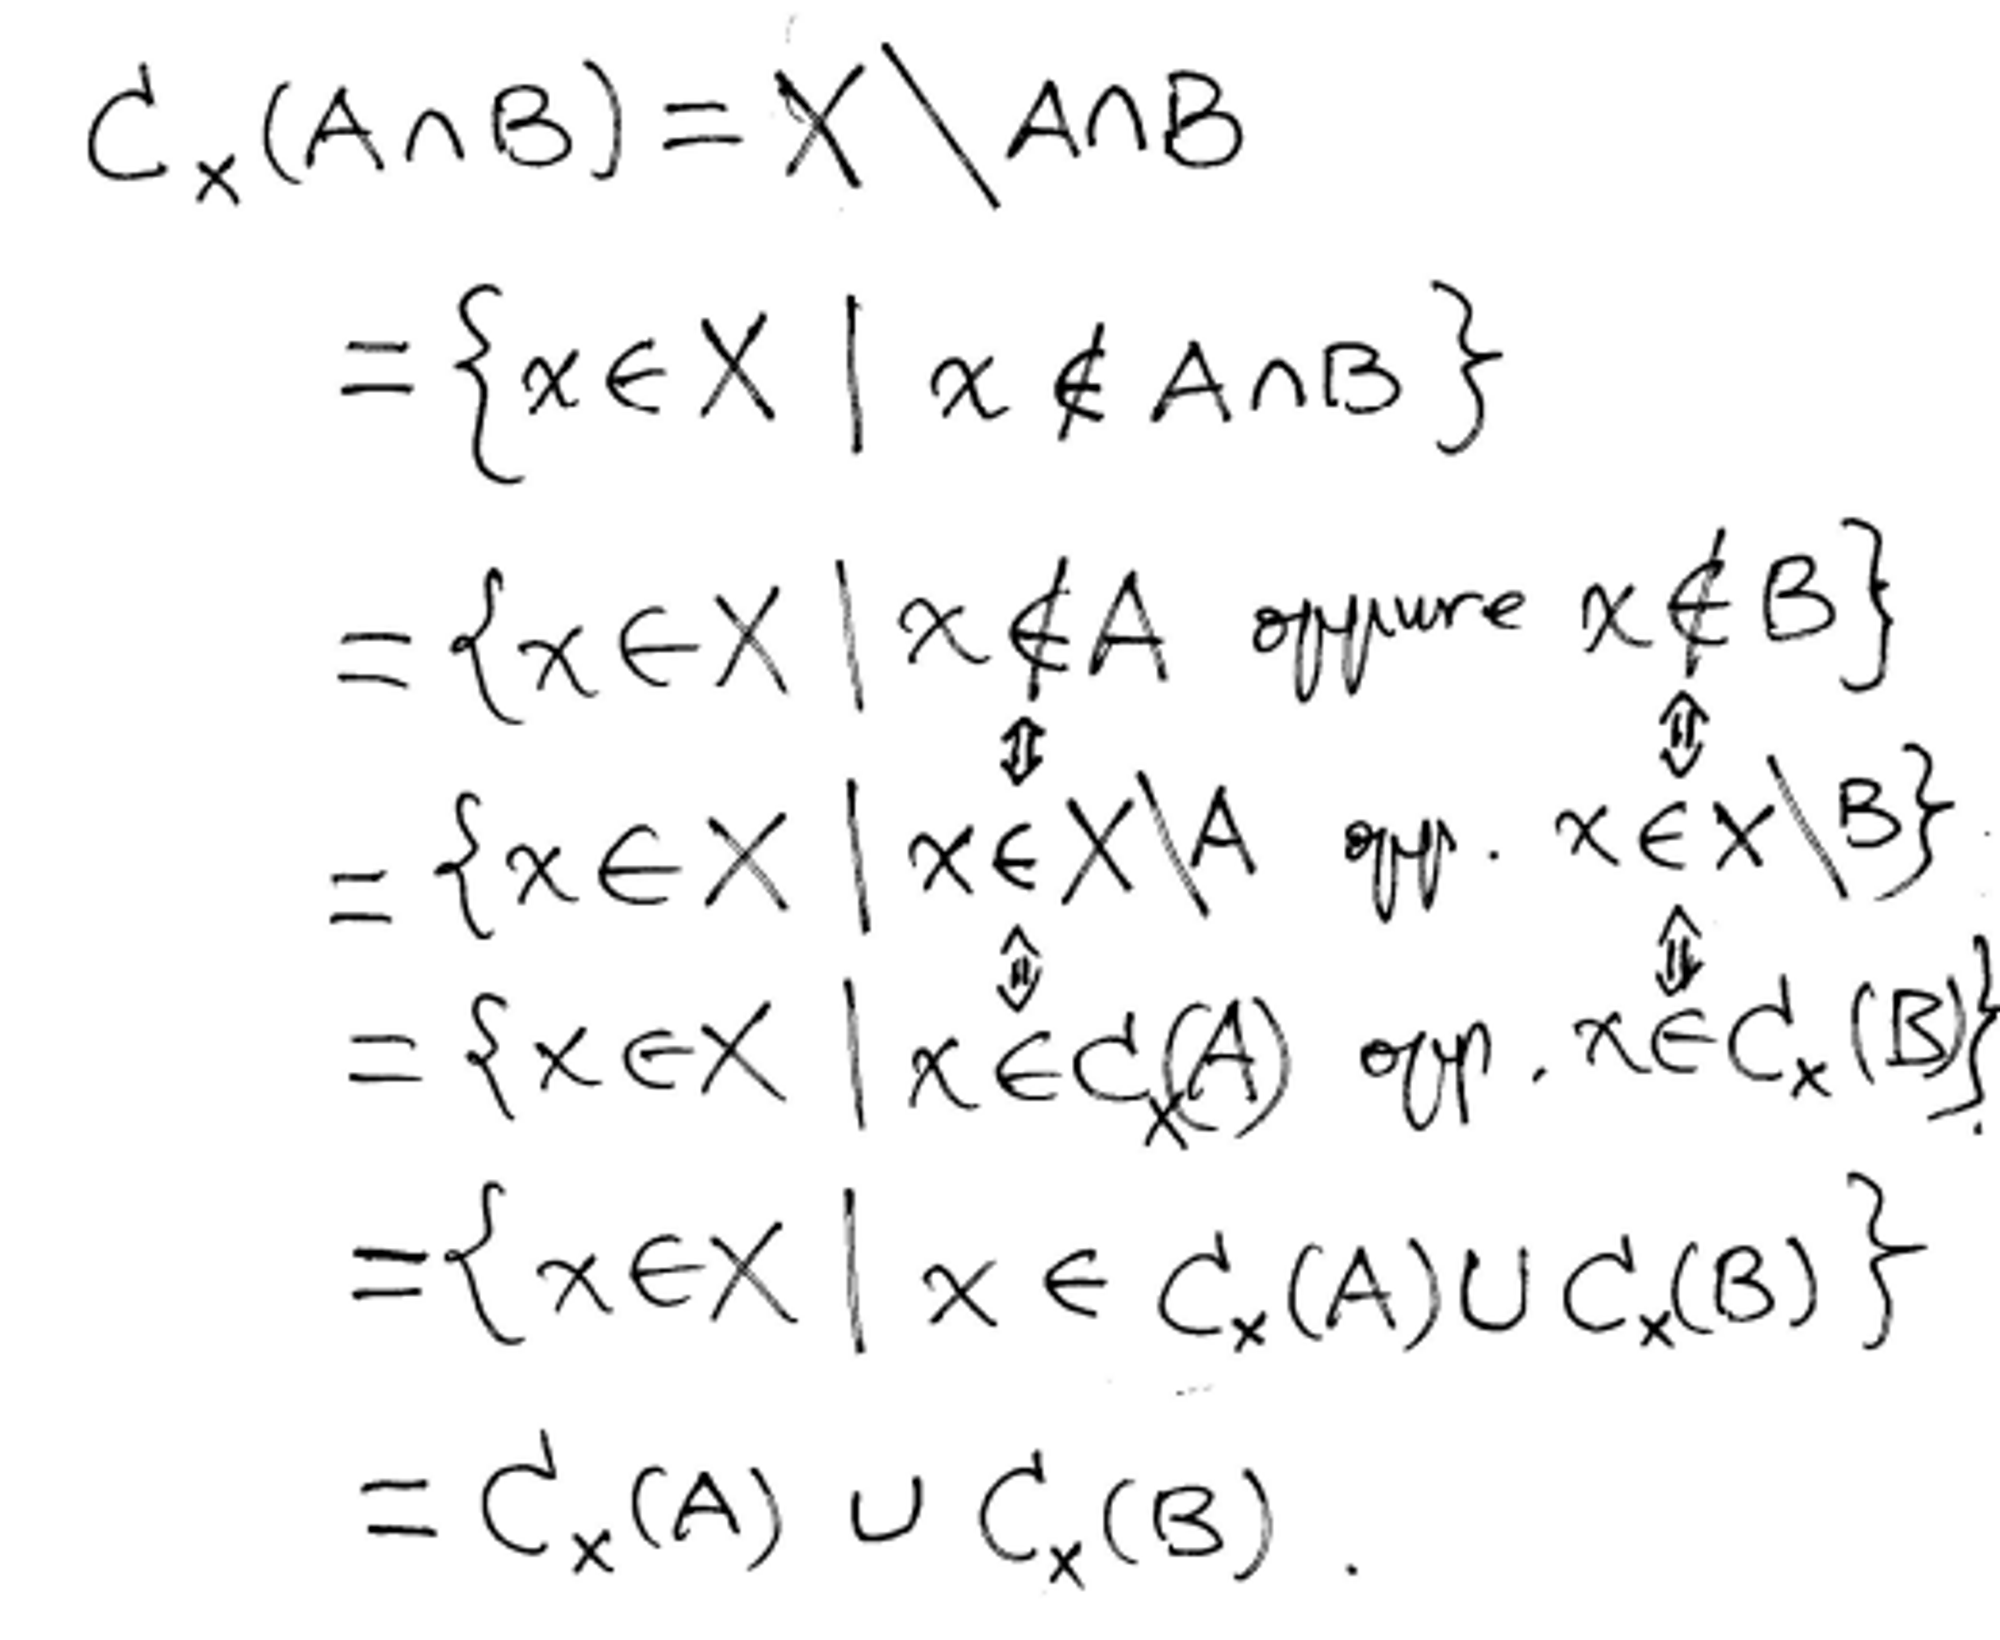 C_X(A∩B) = X \ A∩B
= {x∈X | x ∉ A∩B}
= {x∈X | x∉A oppure x∉B}
⇕ ⇕
= {x∈X | x∈X\A opp. x∈X\B}.
⇕ ⇕
= {x∈X | x∈C_X(A) opp. x∈C_X(B)}.
= {x∈X | x ∈ C_X(A) ∪ C_X(B)}
= C_X(A) ∪ C_X(B).